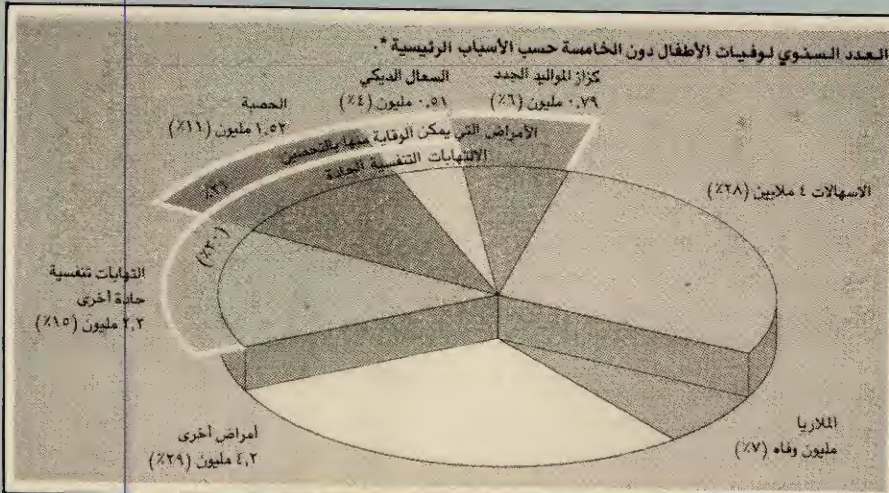 العدد السنوي لوفيات الأطفال دون الخامسة حسب الأسباب الرئيسية *.
كزاز المواليد الجدد
٠,٧٩ مليون (٦٪)
السعال الديكي
٠,٥١ مليون (٤٪)
الحصبة
١,٥٢ مليون (١١٪)
الأمراض التي يمكن الوقاية منها بالتحصين
(٢١٪)
الالتهابات التنفسية الحادة
(٣٠٪)
الاسهالات ٤ ملايين (٢٨٪)
التهابات تنفسية
حادة أخرى
٢,٢ مليون (١٥٪)
أمراض أخرى
٤,٢ مليون (٢٩٪)
الملاريا
مليون وفاه (٧٪)